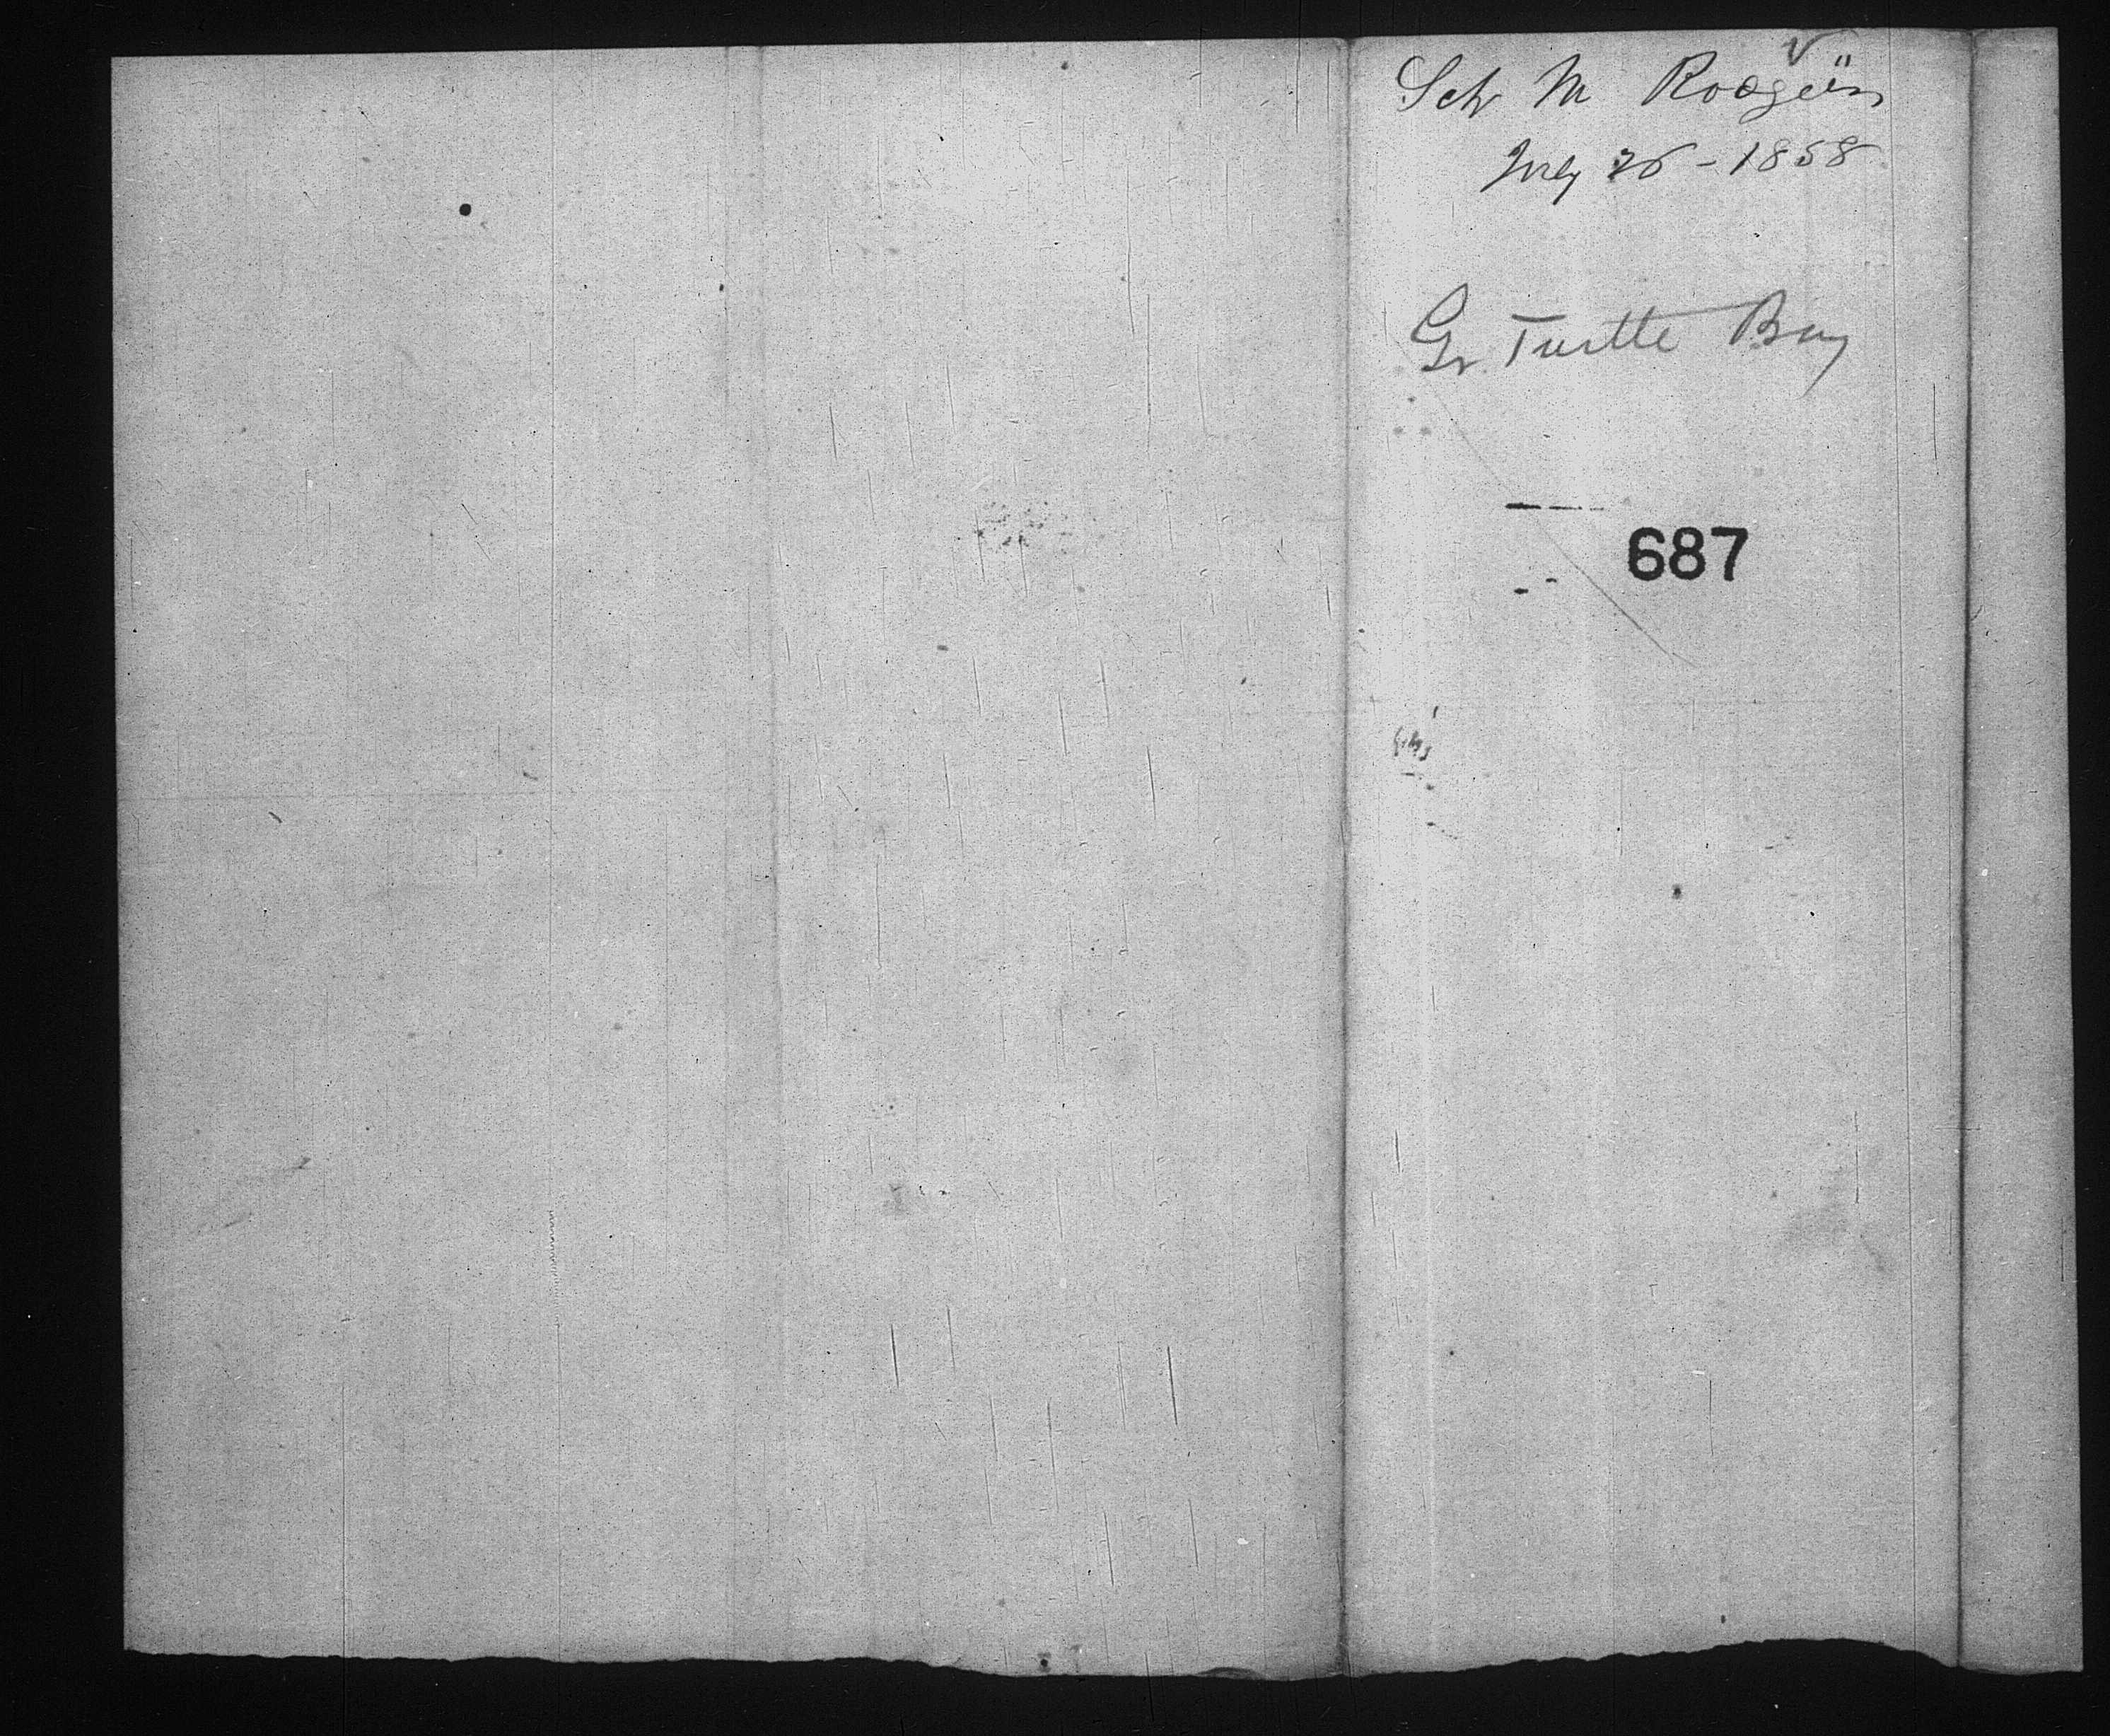 Sch M Rodgers
July 26 - 1858
Gr. Turtle Bay
687